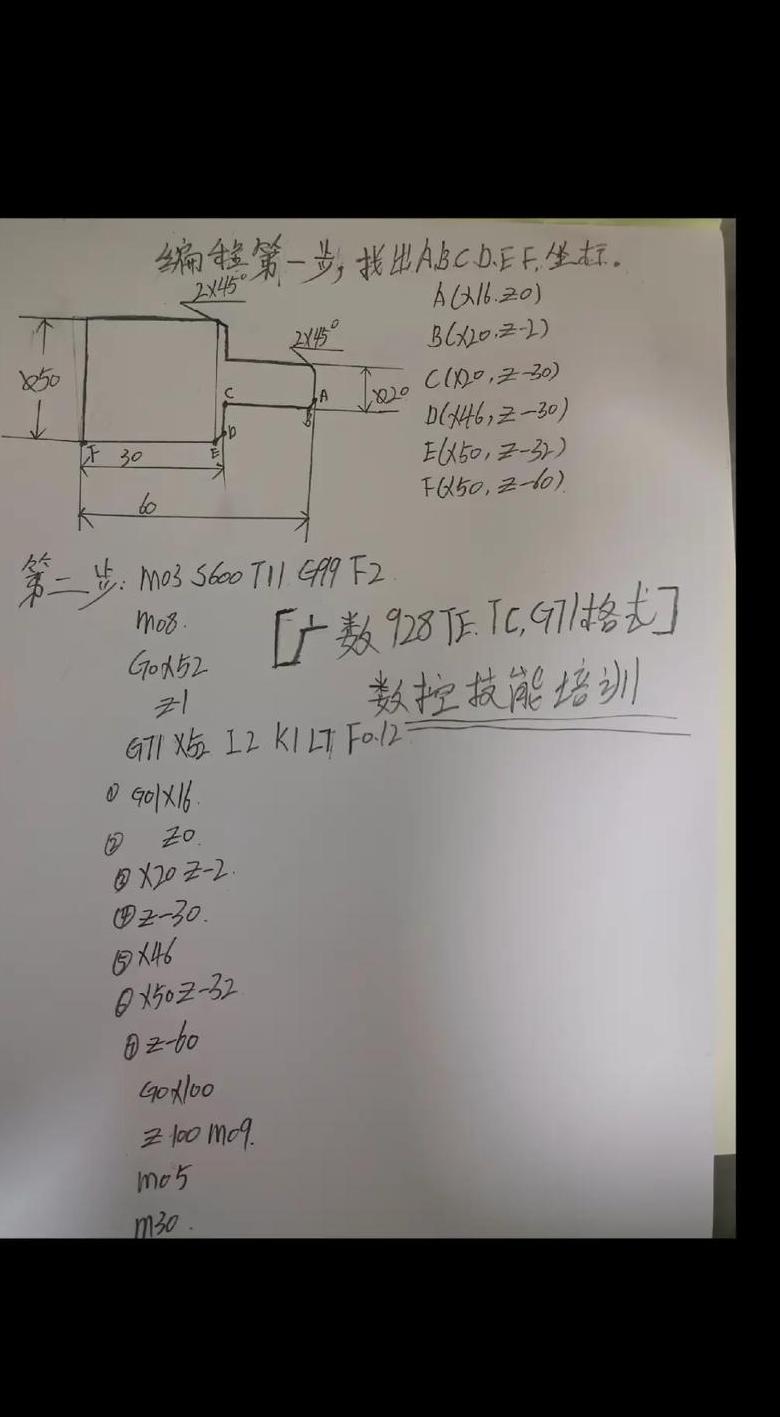 编程第一步,找出A.B.C.D.E.F.坐标。
2X45°
2X45°
A(X16.Z0)
B(X20,Z-2)
C(X20,Z-30)
D(X46,Z-30)
E(X50,Z-32)
F(X50,Z-60)
50
20
C
A
B
D
F
30
E
60
第二步: M03 S600 T11 G99 F2
M08.
[广数928TE.TC,G71格式]
G0X52
数控技能培训
Z1
G71 X52 I2 K1 L7 F0.12
① G01X16.
② Z0
③ X20 Z-2.
④ Z-30.
⑤ X46
⑥ X50Z-32
⑦ Z-60
G0X100
Z100 M09.
M05
M30.